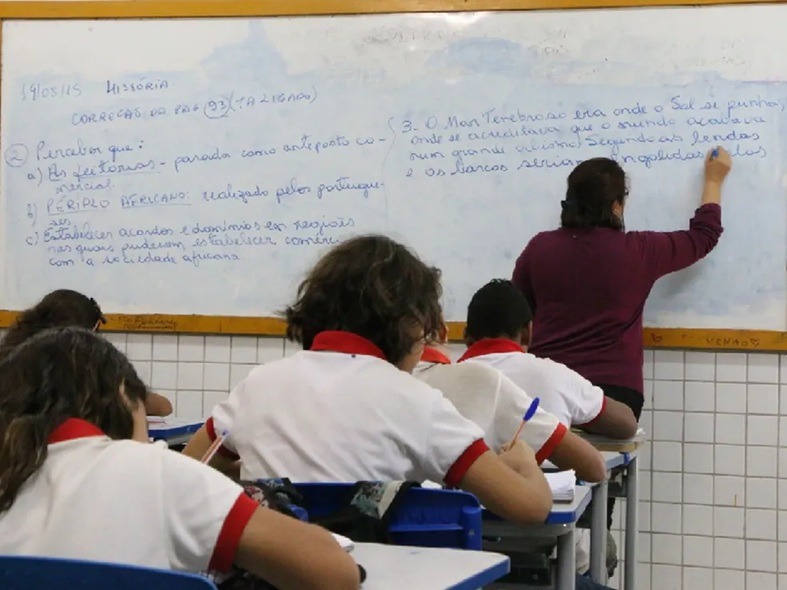 19/05/15 HISSÓRIA
CORREÇÃO DA PÁG 93 (TÁ LIGADO)
2 Perceber que:
a) As feitorias - parada como anteposto co-
mercial.
b) PÉRIPLO AFRICANO: realizado pelos portugue-
ses.
c) Estabelecer acordos e domínios em regiões
nas quais puderem estabelecer comérci
com a sociedade africana
3- O Mar Tenebroso era onde o Sol se punha,
onde se acreditava que o mundo acabava
num grande abismo. Segundo as lendas
e os barcos seriam engolidos